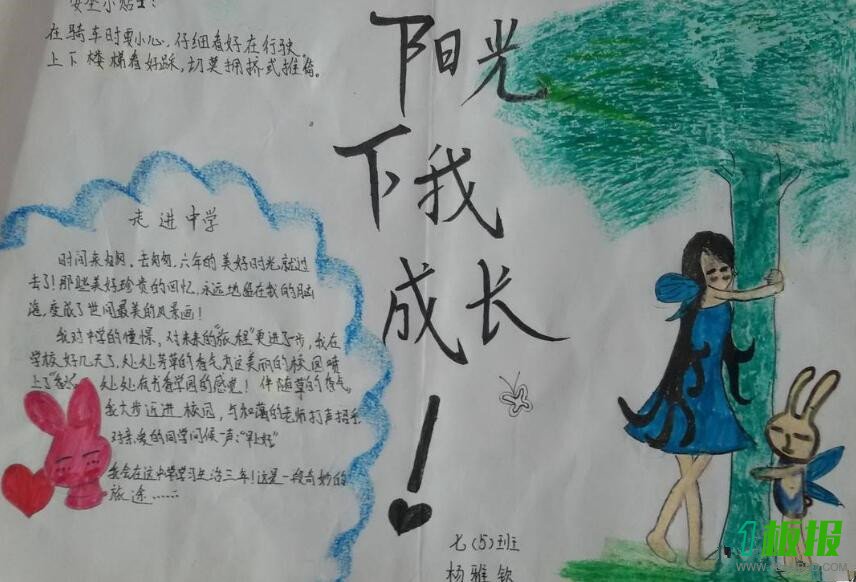 安全小贴士:
在骑车时要小心，仔细看好在行驶。
上下楼梯看好踩，切莫拥挤式推
阳光
下我
成长
！
走进中学
时间来匆匆，去匆匆，六年的美好时光就过
去了！那些美好珍贵的回忆，永远地留在我的脑
海，变成了世间最美的风景画！
我对中学的憧憬，对未来的“旅程”更进了步，我在
学校好几天了，处处芳草的香气为这美丽的校园喷
上了 处处有书香学园的感觉！伴随草的香气。
我大步迈进校园，与和蔼的老师打声招呼
对亲爱的同学问候一声：“早上好”
我会在这中学学习生活三年！这是一段奇妙的
旅途……
七(5)班
杨雅钦
板报